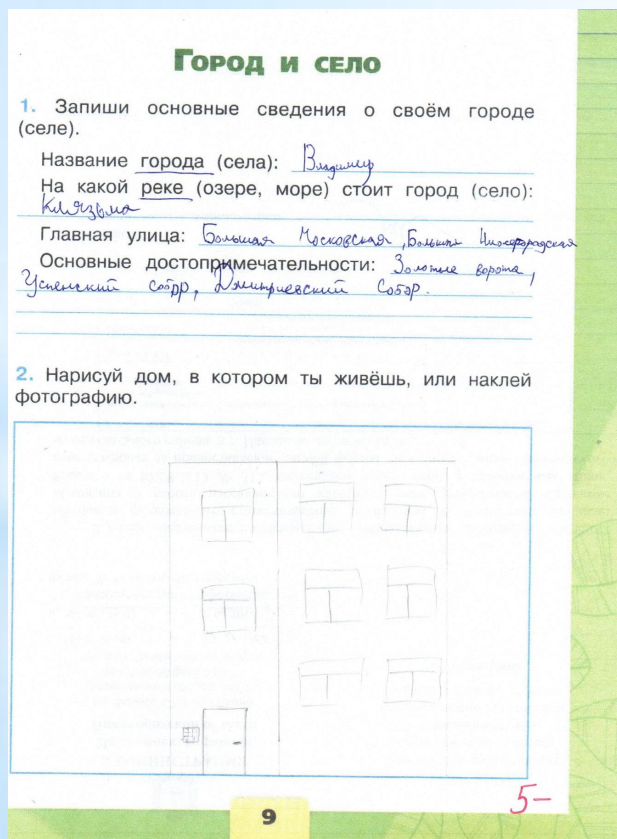 ГОРОД И СЕЛО
1. Запиши основные сведения о своём городе
(селе).
Название города (села): Владимир
На какой реке (озере, море) стоит город (село):
Клязьма
Главная улица: Большая Московская, Большая Нижегородская
Основные достопримечательности: Золотые ворота,
Успенский собор, Дмитриевский Собор.
2. Нарисуй дом, в котором ты живёшь, или наклей
фотографию.
9
5-